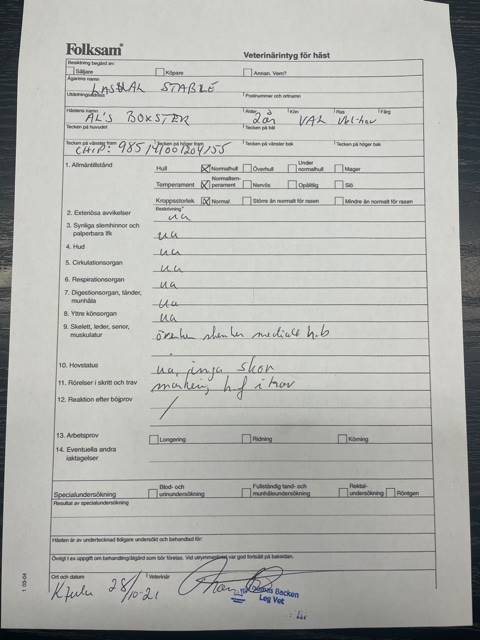 Folksam® Veterinärintyg för häst
Besiktning begärd av:
Säljare Köpare Annan. Vem?
Ägarens namn
LASUAL STABLE
Utdelningsadress Postnummer och ortnamn
Hästens namn Ålder Kön Ras Färg
AL'S BOXSTER 2år VAL
Tecken på huvudet Tecken på bål
Tecken på vänster fram Tecken på höger fram Tecken på vänster bak Tecken på höger bak
CHIP: 985141001204155
1. Allmäntillstånd Hull Normalhull Överhull Under normalhull Mager
Temperament Normaltemperament Nervös Opålitlig Slö
Kroppsstorlek Normal Större än normalt för rasen Mindre än normalt för rasen
Beskrivning
2. Exteriösa avvikelser ua
3. Synliga slemhinnor och
palperbara lfk ua
4. Hud ua
5. Cirkulationsorgan ua
6. Respirationsorgan ua
7. Digestionsorgan, tänder,
munhåla ua
8. Yttre könsorgan ua
9. Skelett, leder, senor,
muskulatur mediale h.b
10. Hovstatus ua, inga skor
11. Rörelser i skritt och trav hf i trav
12. Reaktion efter böjprov /
13. Arbetsprov Longering Ridning Körning
14. Eventuella andra
iakttagelser
Specialundersökning Blod- och urinundersökning Fullständig tand- och munhåleundersökning Rektalundersökning Röntgen
Resultat av specialundersökning
Hästen är av undertecknad tidigare undersökt och behandlad för:
Övrigt t ex uppgift om behandling/åtgärd som bör företas. Vid utrymmesbrist var god fortsätt på baksidan.
Ort och datum Veterinär
28/10-21
Backen
Leg Vet